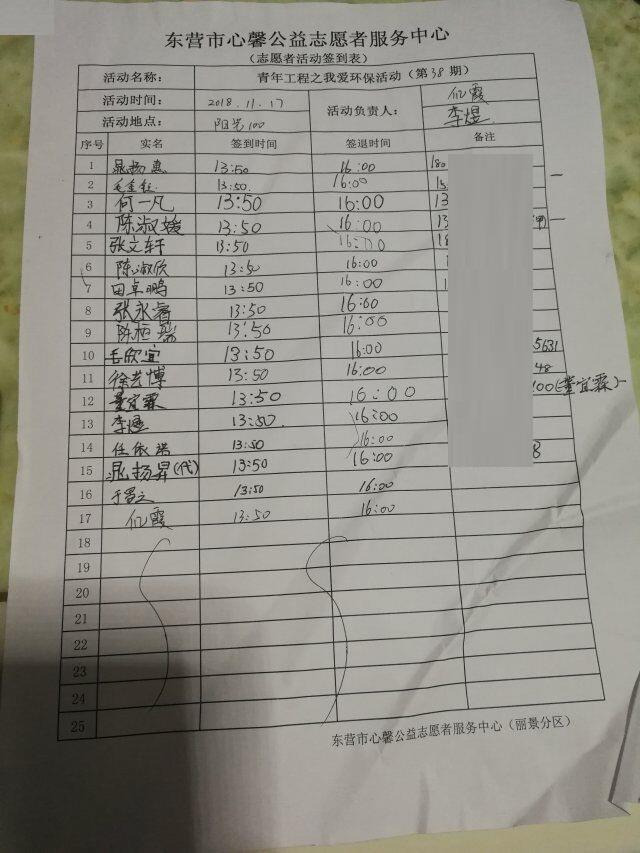 东营市心馨公益志愿者服务中心
（志愿者活动签到表）
活动名称： 青年工程之我爱环保活动（第38期）
活动时间： 2018.11.17 活动负责人： 霞
活动地点： 阳光100 李煜
序号 实名 签到时间 签退时间 备注
1 晁扬惠 13:50 16:00 180
2 13:50. 16:00 15
3 何一凡 13:50 16:00 13
4 陈淑媛 13:50 16:00 13
5 张文轩 13:50 16:00 18
6 陈淑欣 13:50 16:00
7 田卓鹏 13:50 16:00
8 张永睿 13:50 16:00
9 陈恒瑞 13:50 16:00
10 毛欣宜 13:50 16:00 5631
11 徐艺博 13:50 16:00 48
12 董宜霖 13:50 16:00 100(董宜霖)
13 李煜 13:50. 16:00
14 任依诺 13:50 16:00
15 晁扬昇(代) 13:50 16:00 8
16 13:50 16:00
17 霞 13:50 16:00
18
19
20
21
22
23
24
25
东营市心馨公益志愿者服务中心（丽景分区）